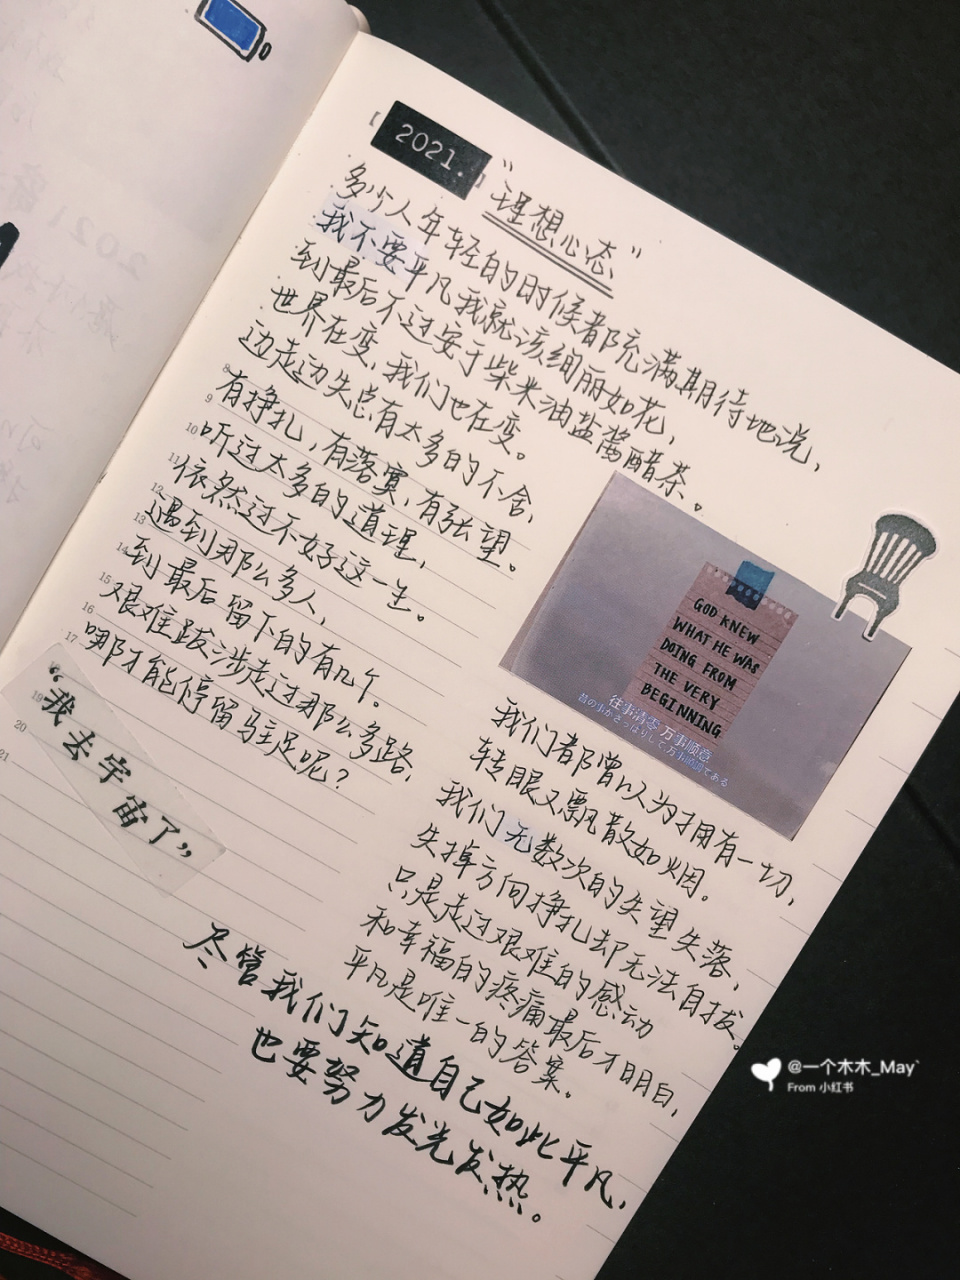 【2021.】
"理想心态"
多少人年轻的时候都充满期待地说，
我不要平凡我就该绚丽如花，
到最后不过安于柴米油盐酱醋茶。
世界在变，我们也在变。
边走边失总有太多的不舍，
有挣扎，有落寞，有张望。
听过太多的道理，
依然过不好这一生。
遇到那么多人，
到最后留下的有几个。
艰难跋涉走过那么多路，
哪才能停留驻足呢？
8
9
10
11
12
13
14
15
16
17
19
20
21
"我去宇宙了"
GOD KNEW
WHAT HE WAS
DOING FROM
THE VERY
BEGINNING.
往事清零 万事顺意
昔の事がさっぱりして万事順調である
我们都曾以为拥有一切，
转眼又飘散如烟。
我们无数次的失望失落，
失掉方向挣扎却无法自拔。
只是走过艰难的感动
和幸福的疼痛最后才明白，
平凡是唯一的答案。
尽管我们知道自己如此平凡，
也要努力发光发热。
@一个木木_May`
From 小红书